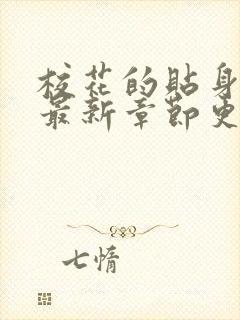 校花的贴身
最新章節更
七情